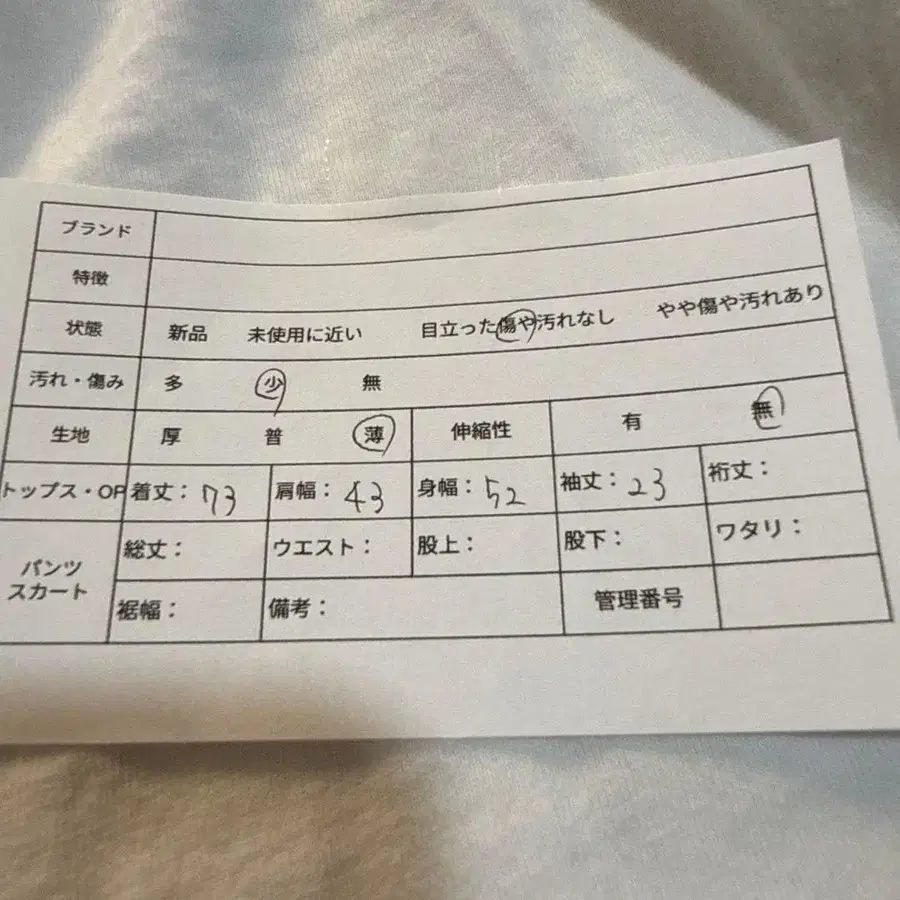 ブランド
特徴
状態 新品 未使用に近い 目立った傷や汚れなし やや傷や汚れあり
汚れ・傷み 多 少 無
生地 厚 普 薄 伸縮性 有 無
トップス・OP 着丈：73 肩幅：43 身幅：52 袖丈：23 裄丈：
パンツ スカート 総丈： ウエスト： 股上： 股下： ワタリ：
裾幅： 備考： 管理番号